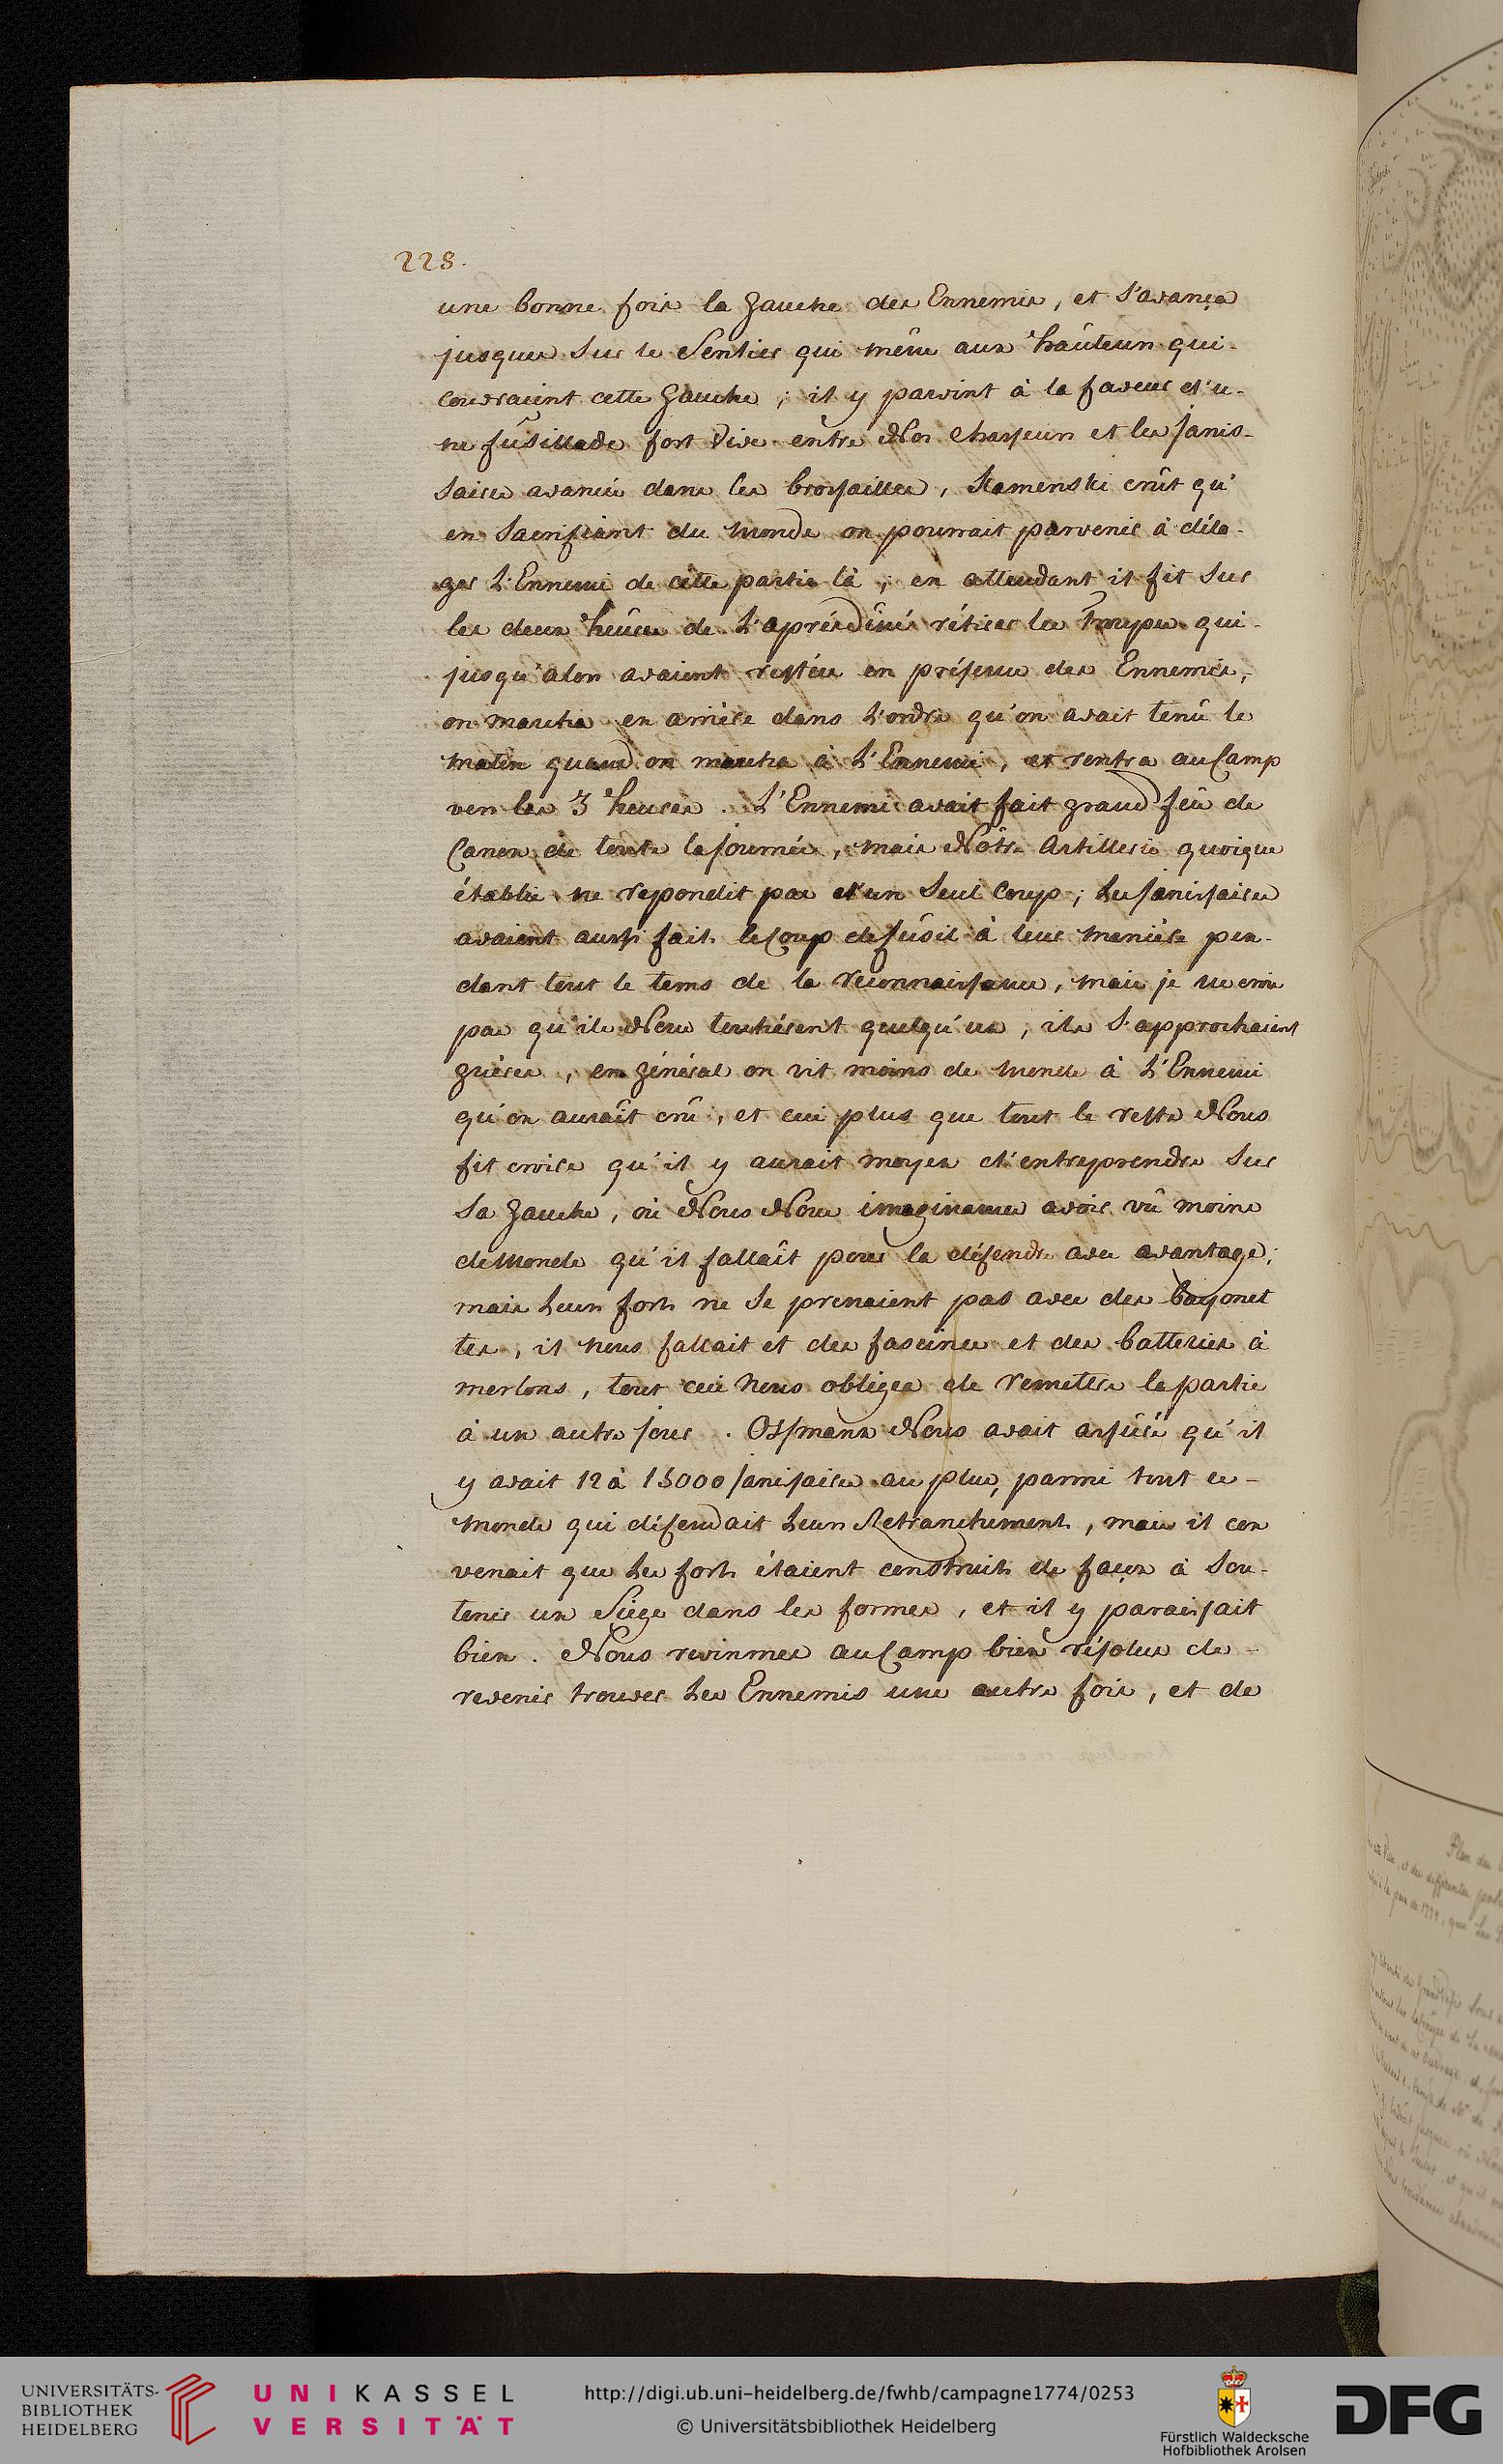 228.
une bonne fois la gauche des Ennemis, et s'avança
jusques sur le Sentier qui mêne aux hâuteurs qui
couvraient cette Gauche ; il y parvint à la faveur d'u-
ne fûsillade fort vive entre Nos Chasseurs et les Janis-
saires avancés dans les brossailles, Kamenski crût qu'
en Sacrifiant du monde on pourrait parvenir à délo-
ger L'Ennemi de cette partie là ; en attendant il fit sur
les deux heûres de L'aprésdîné rétirer les Troupes qui
jusqu'alors avaient restées en présence des Ennemis,
on marcha en arriére dans L'ordre qu'on avait tenû le
matin quand on marcha à L'Ennemi, et rentra au Camp
vers les 3 heures. L'Ennemi avait fait grand feû de
Canon de toute la journée, mais Nôtre Artillerie quoique
établie ne repondit pas d'un Seul Coup ; Les Janissaires
avaient aussi fait le Coup de fûsil à leur maniére pen-
dant tout le tems de la reconnaissance, mais je ne crois
pas qu'ils Nous touchérent quelqu'un, ils s'approchaient
guères, en général on vit moins de monde à L'Ennemi
qu'on auraît crû, et ceci plus que tout le reste Nous
fit croire qu'il y aurait moyen d'entreprendre sur
sa gauche, où Nous Nous imaginames avoir vû moins
de Monde qu'il fallaît pour la défendre avec avantage ;
mais Leurs forts ne se prenaient pas avec des bayonet
tes, il nous fallait et des fascines et des batteries à
merlons, tout ceci Nous obligea de remettre la partie
à un autre jour. Ossmann Nous avait assûré qu'il
y avait 12 à 15000 Janissaires au plus, parmi tout ce
monde qui défendait Leurs Retranchements, mais il con
venait que Les forts étaient construits de façon à Sou-
tenir un Siége dans les formes, et il y paraissait
bien. Nous revinmes au Camp bien résolus de
revenir trouver Les Ennemis une autre fois, et de
Plan du
UNIVERSITÄTS-
BIBLIOTHEK
HEIDELBERG
UNIKASSEL
VERSITÄT
http://digi.ub.uni-heidelberg.de/fwhb/campagne1774/0253
© Universitätsbibliothek Heidelberg
Fürstlich Waldecksche
Hofbibliothek Arolsen
DFG